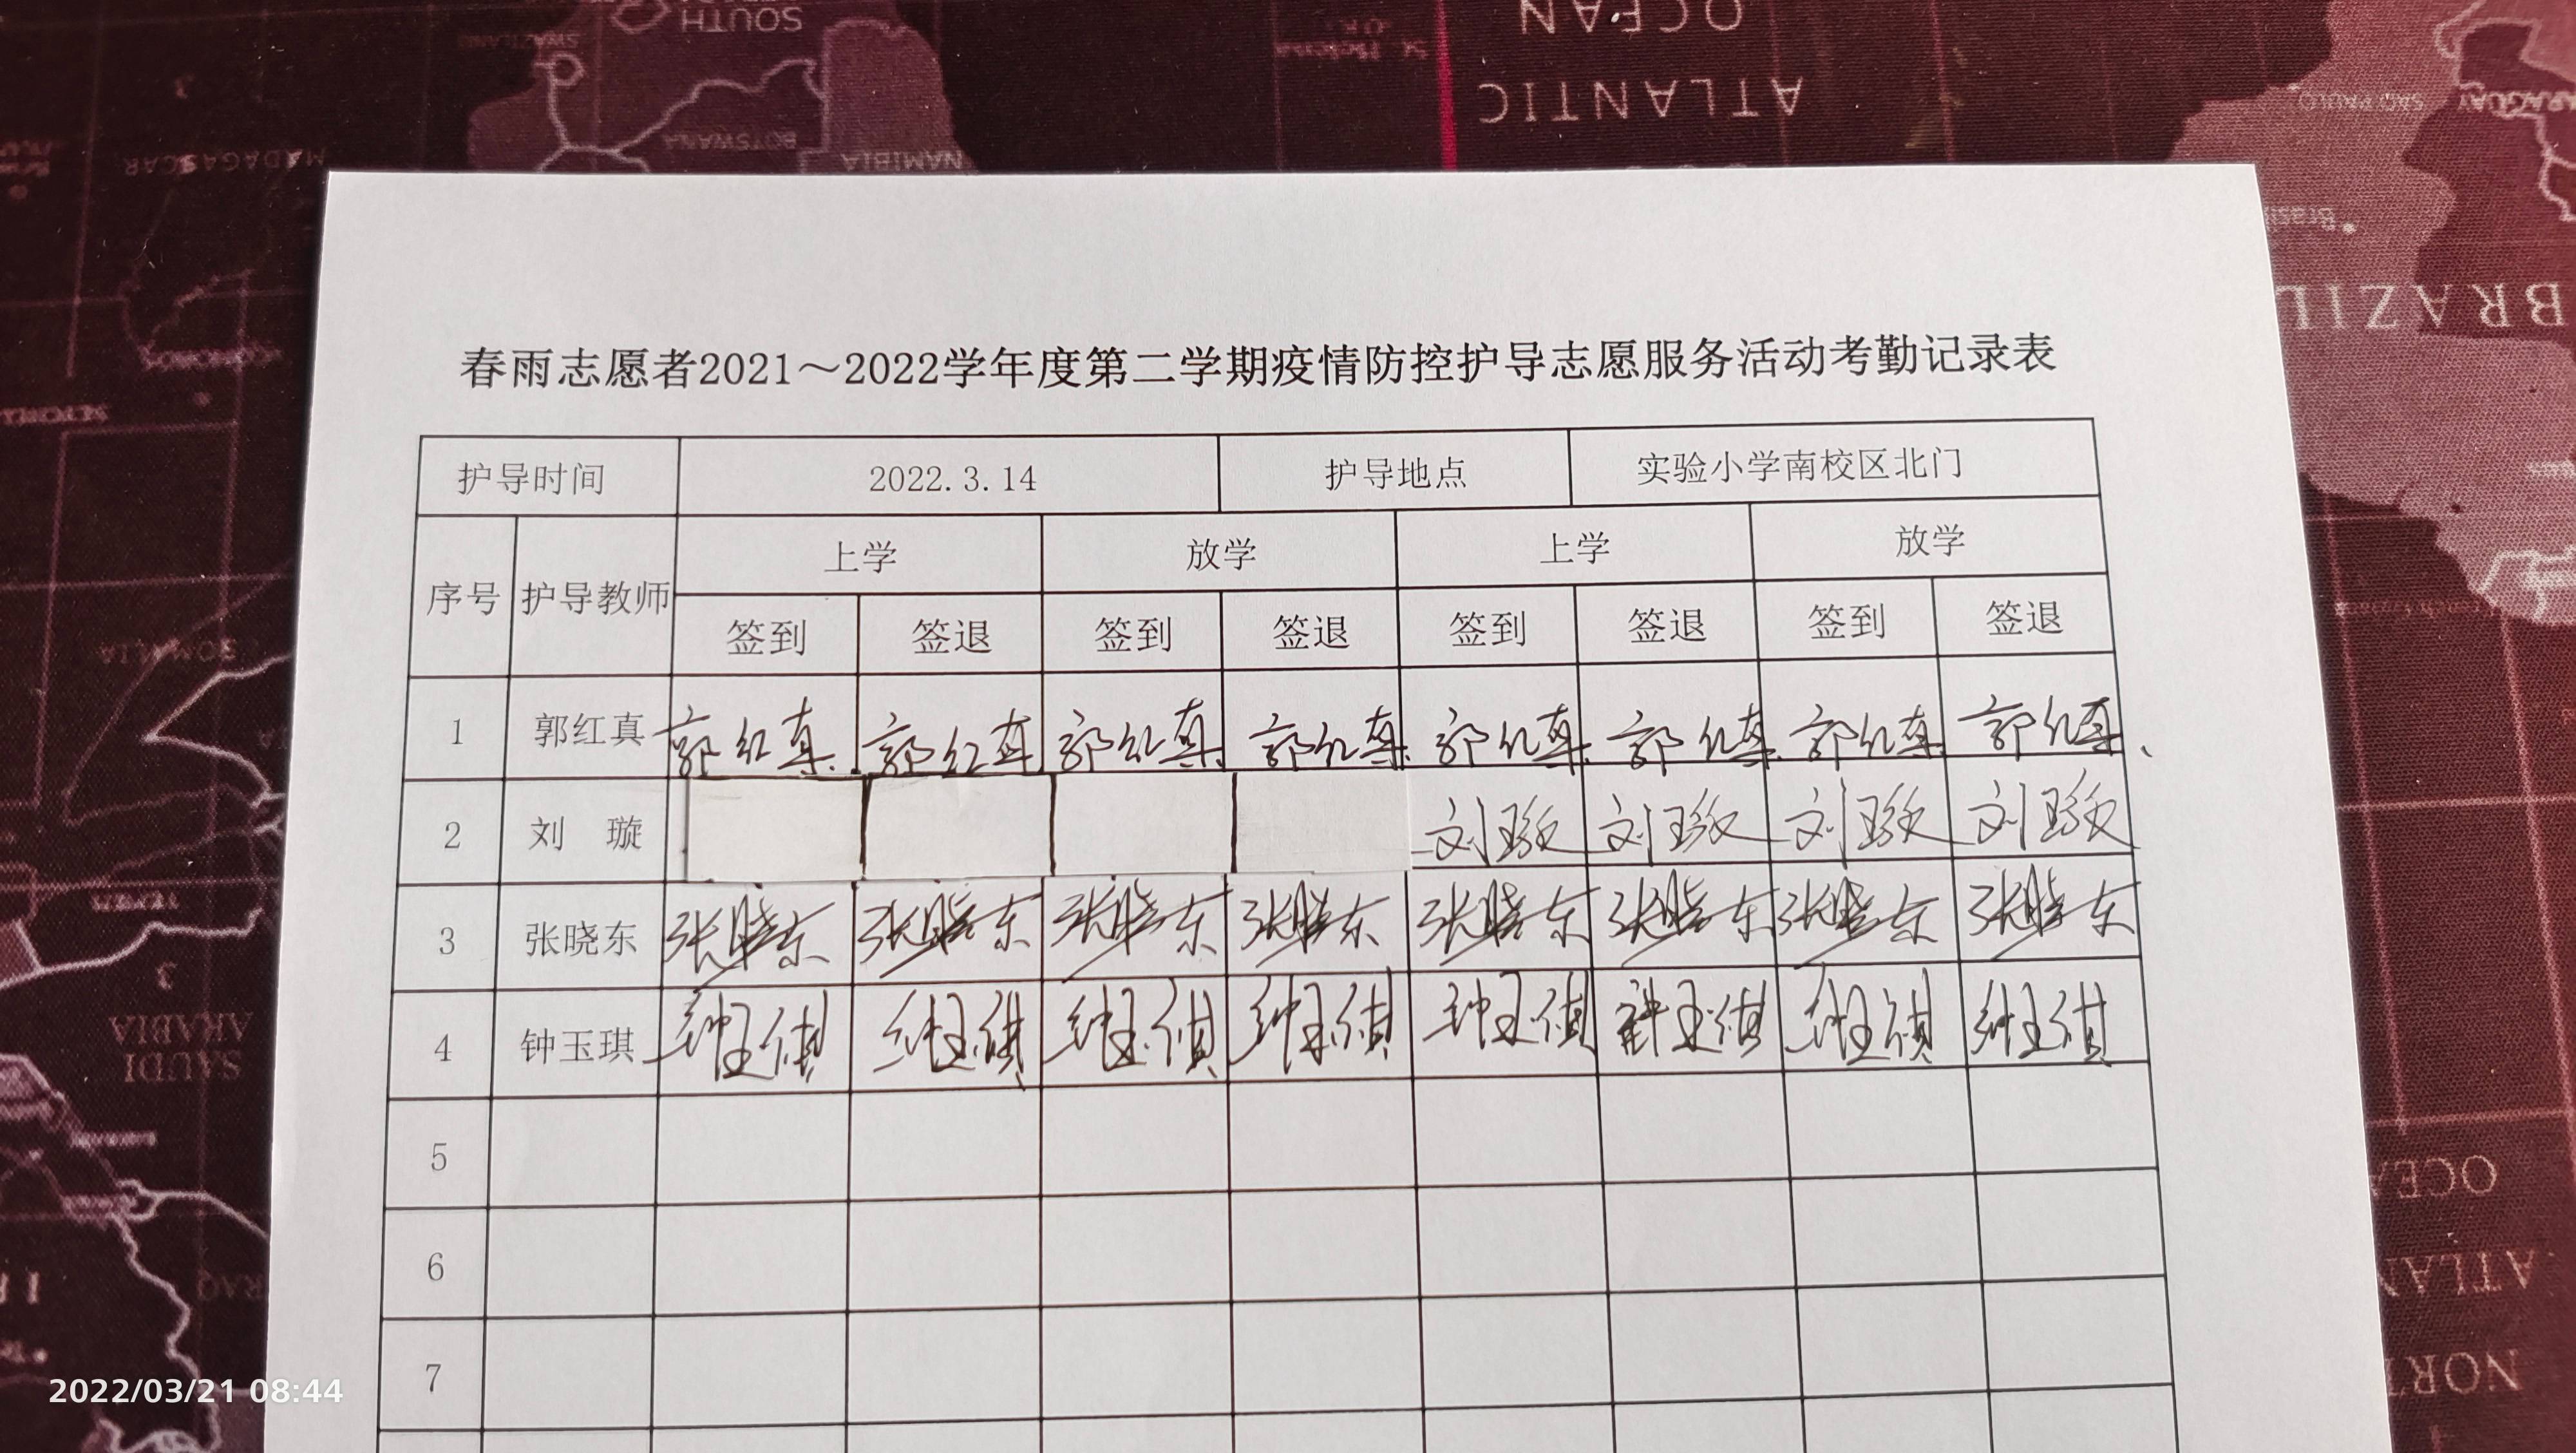 SOUTH
SWAZILAND
BOTSWANA
NAMIBIA
MADAGASCAR
OCEAN
ATLANTIC
SAO PAULO
PARAGUAY
BRAZIL
春雨志愿者2021～2022学年度第二学期疫情防控护导志愿服务活动考勤记录表
护导时间 2022.3.14 护导地点 实验小学南校区北门
序号 护导教师 上学 放学 上学 放学
签到 签退 签到 签退 签到 签退 签到 签退
1 郭红真 郭红真 郭红真 郭红真 郭红真 郭红真 郭红真 郭红真 郭红真
2 刘 璇 刘璇 刘璇 刘璇 刘璇
3 张晓东 张晓东 张晓东 张晓东 张晓东 张晓东 张晓东 张晓东 张晓东
4 钟玉琪 钟玉琪 钟玉琪 钟玉琪 钟玉琪 钟玉琪 钟玉琪 钟玉琪 钟玉琪
5
6
7
SOMALIA
YEMEN
SAUDI
ARABIA
2022/03/21 08:44